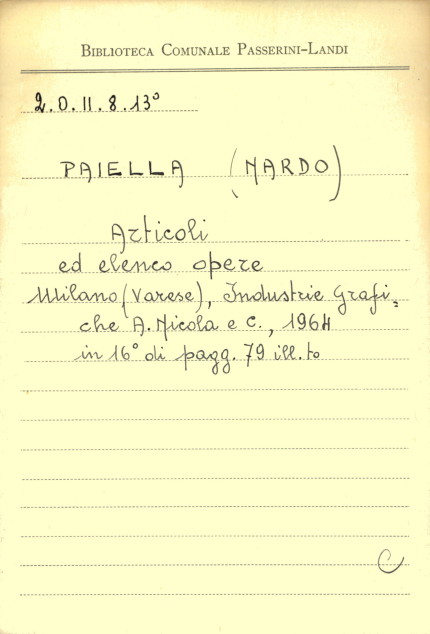 BIBLIOTECA COMUNALE PASSERINI-LANDI
2.O.II.8.13°
PAIELLA (NARDO)
Articoli
ed elenco opere
Milano (Varese), Industrie Grafi=
che A. Nicola e C., 1964
in 16° di pagg. 79 ill.to
C